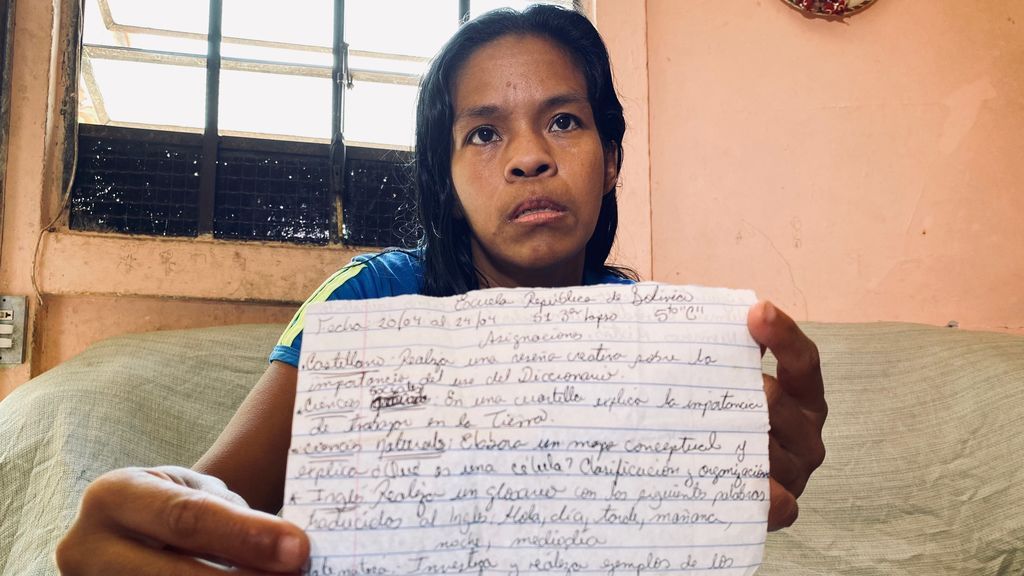 Escuela República de Bolivia
Fecha 20/04 al 24/04 3er lapso 5to "C"
Asignaciones
.Castellano. Realiza una reseña creativa sobre la
importancia del uso del Diccionario.
.Ciencias : En una cuartilla explica la importancia
de trabajar en la Tierra.
.ciencias naturales: Elabora un mapa conceptual y
explica ¿Qué es una célula? Clasificación y organización
Ingles. Realiza un glosario con las siguientes palabras
traducidas al Ingles: Hola, dia, tarde, mañana,
noche, mediodia
Investiga y realiza ejemplos de los